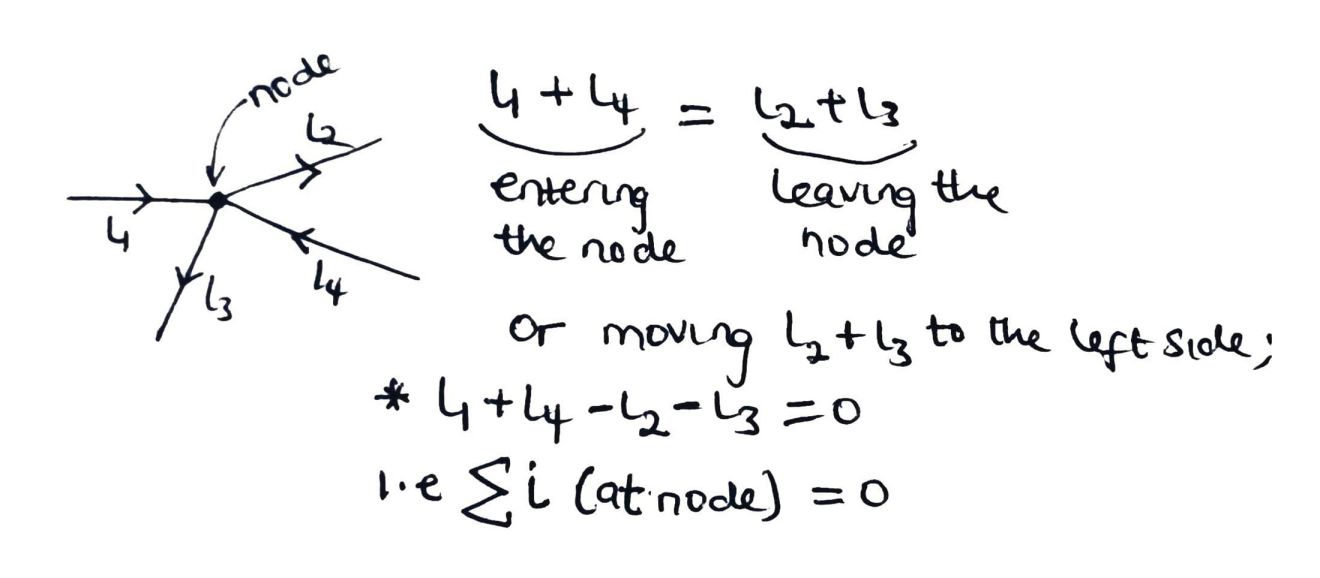 node
i₂
i₁
i₃
i₄
i₁ + i₄ = i₂ + i₃
entering the node
leaving the node
Or moving i₂ + i₃ to the left side;
* i₁ + i₄ - i₂ - i₃ = 0
i.e Σ i (at node) = 0